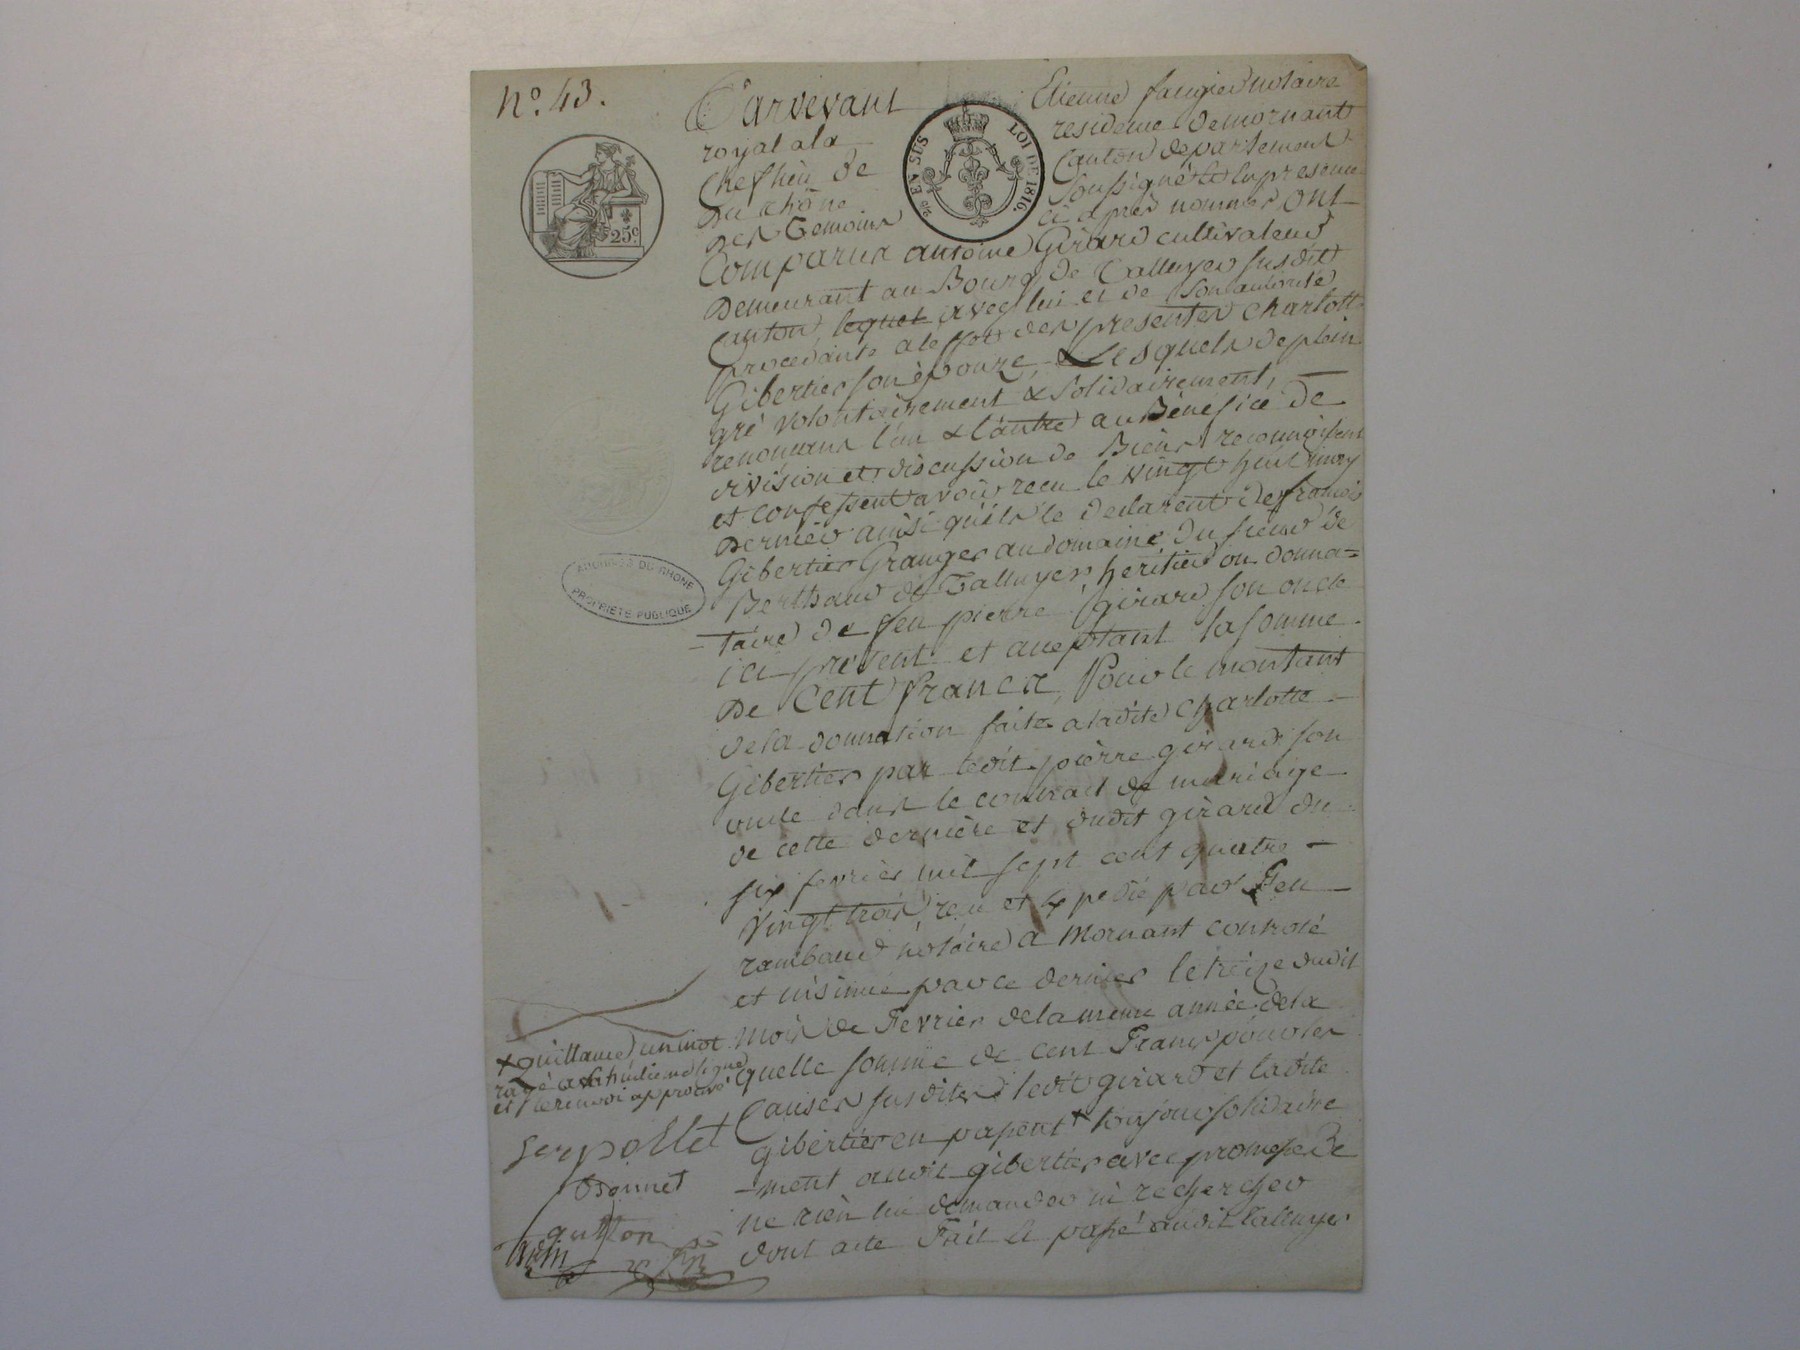 N.o 43.
Pardevant Etienne faugier notaire
royal a la residence de mornant
Chef lieu de Canton departement
du rhône soussigné et en presence
des Temoins ci après nommés ont
25c
LOI DE 1816.
EN SUS
Comparus antoine Girard cultivateur
Demeurant au Bourg de Talluyer susdit
Canton, lequel avec lui et de son autorité
procedante a leffet des presentes Charlotte
Gibertier son épouze, Lesquels de plein
gré volontairement & solidairement,
renonceant l'un & l'autre au Bénéfice de
division et discussion de Biens reconnoissent
et confessent avoir recu le vingt huit may
dernier ainsi quils le declarent de françois
Gibertier Granger au domaine du sieur de
Berthaud de Talluyer héritier ou donna=
-taire de feu pierre Girard son oncle
ici present et acceptant la somme
De Cent francs, Pour le montant
de la donnation faite a ladite Charlotte
Gibertier par ledit pierre girard son
oncle dans le contrat de mariage
de cette dernière et dudit girard du
six fevrier mil sept cent quatre
Vingt trois, recu et expedié par feu
rambaud notaire a Mornant controlé
et insinué par ce dernier le treize dudit
mois de Fevrier de la meme année de la
quelle somme de cent Francs pour les
Causes susdites ledit girard et ladite
gibertier en passent + toujours solidaire
-ment audit gibertier avec promesse de
ne rien lui demander ni rechercher
dont acte Fait et passé audit Talluyer
ARCHIVES DU RHÔNE
PROPRIÉTÉ PUBLIQUE
+ quittance un mot
rayé a la huitieme ligne
et le renvoi approuvé
Serpollet
Bonnet
guitton